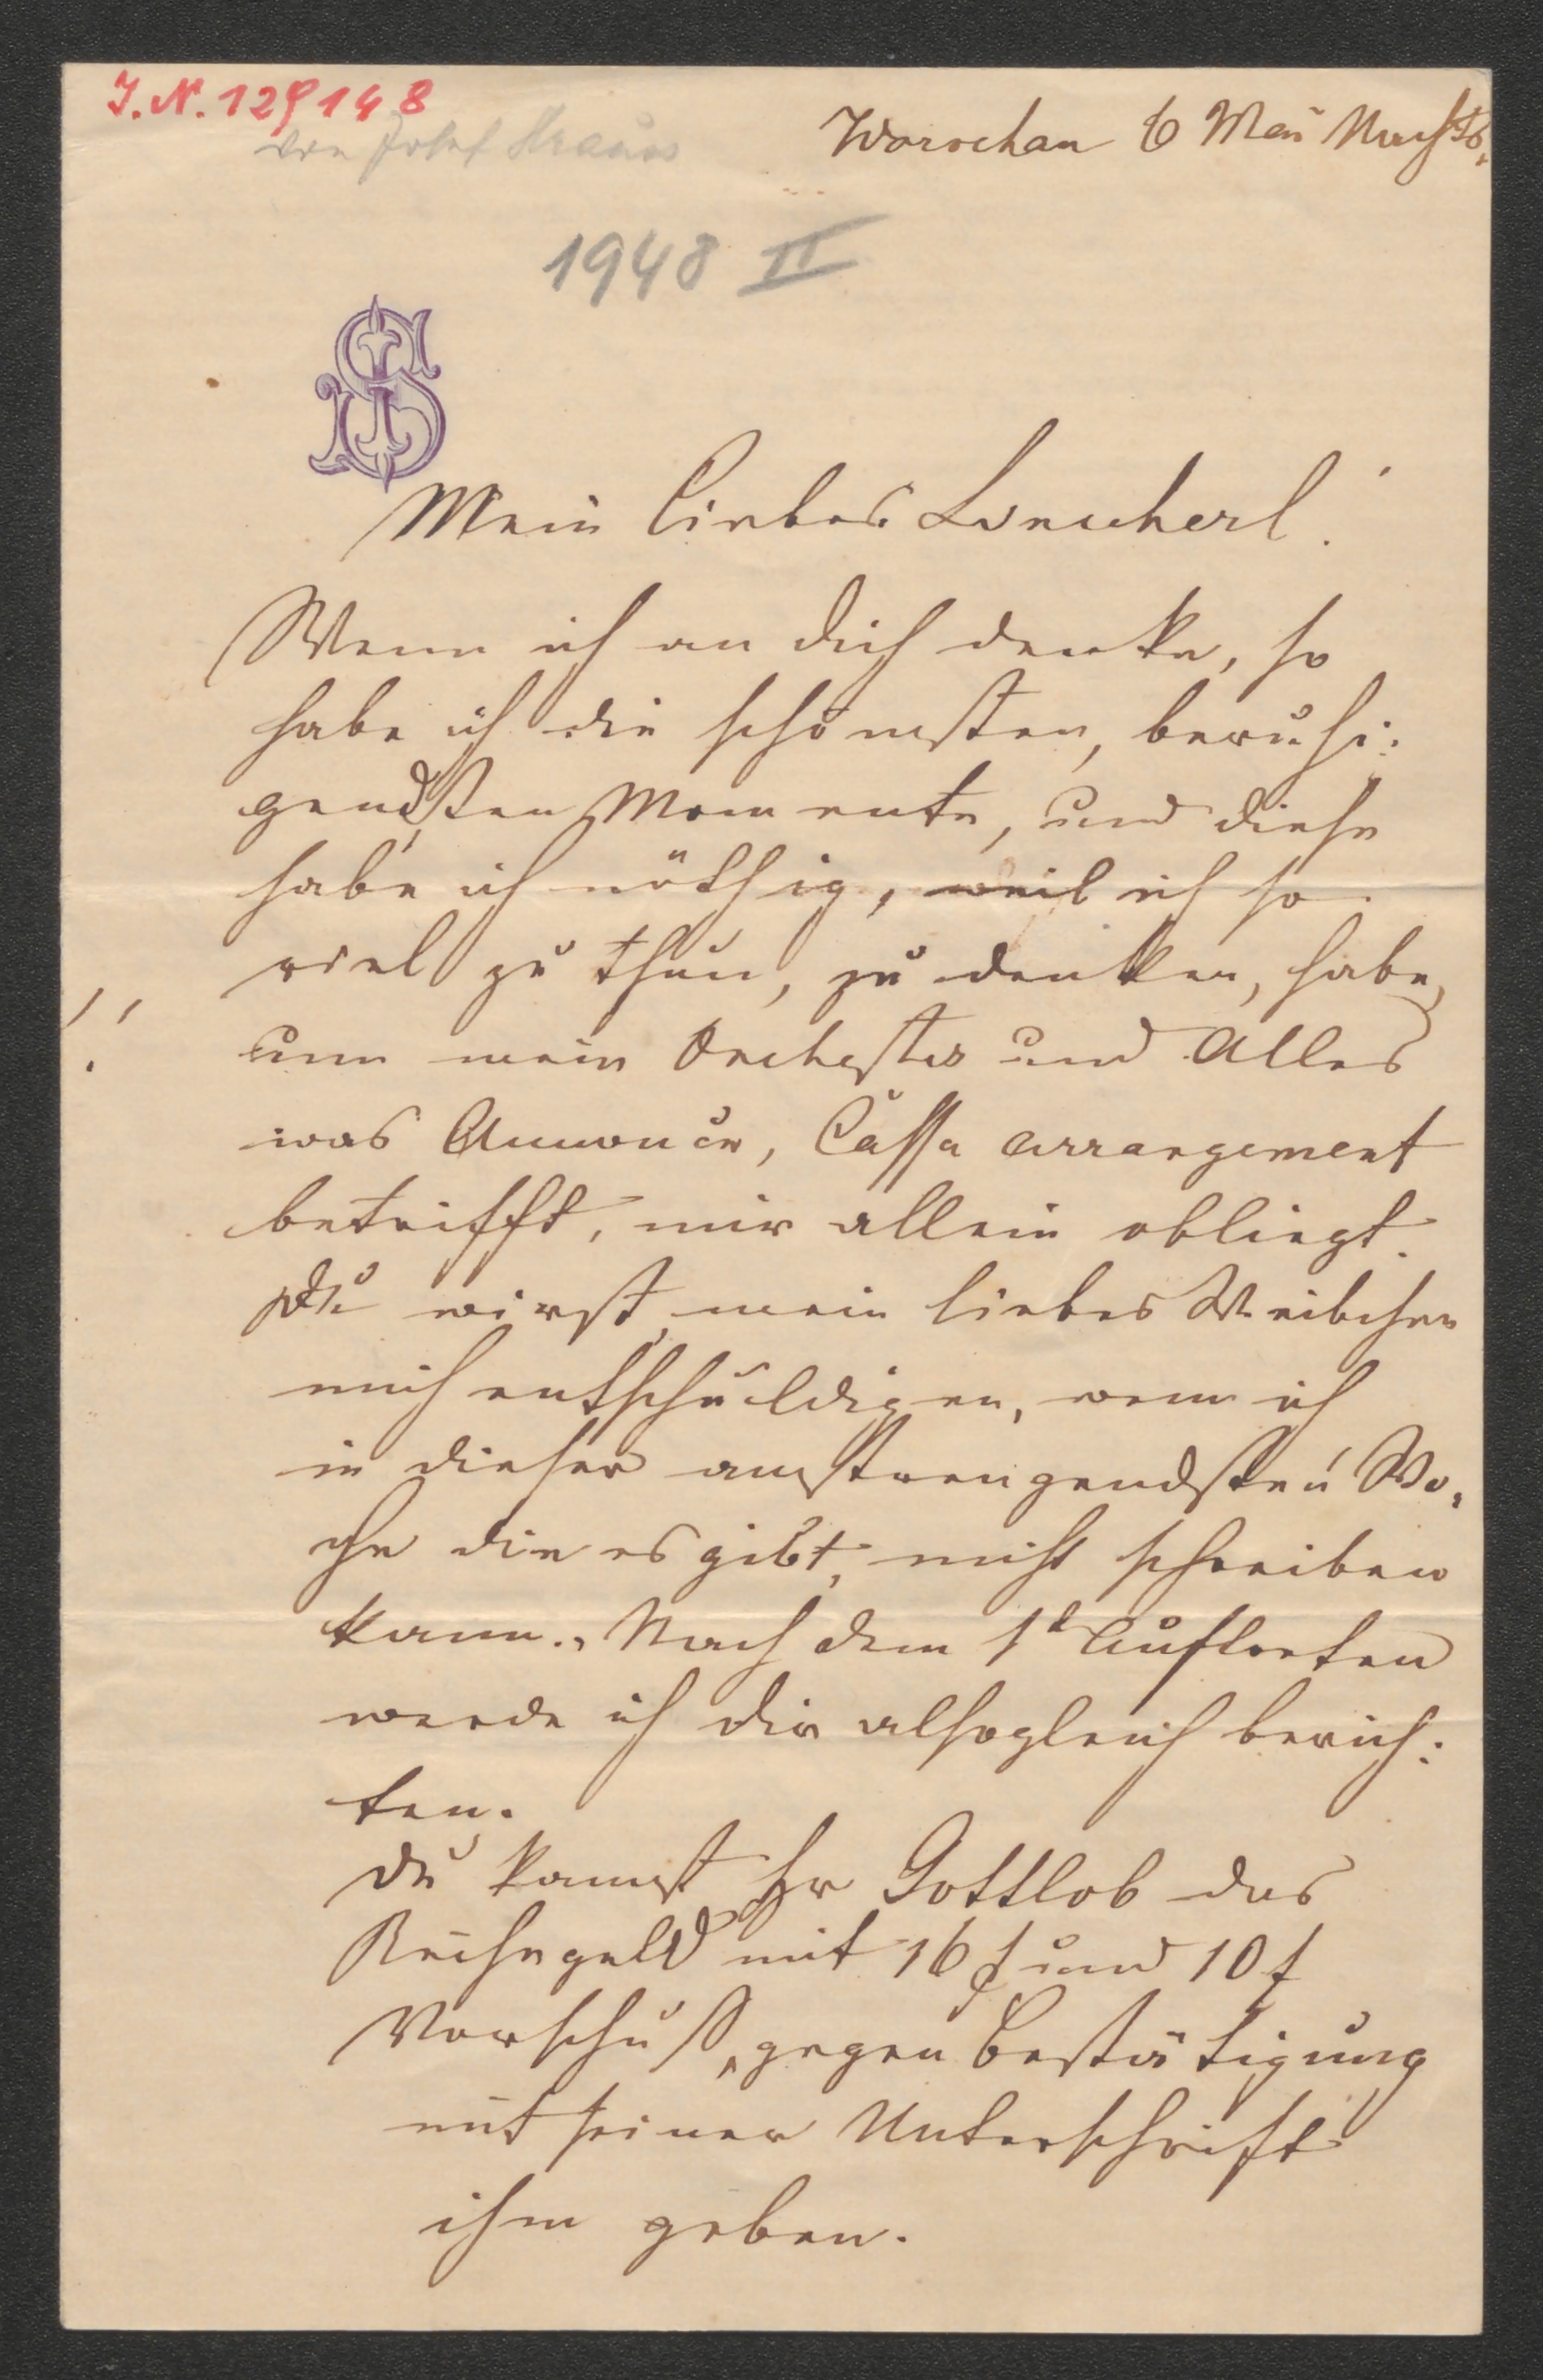 I.N. 129148
von Josef Strauss
Warschau 6 Mai Nachts.
1948 II
JS
Mein liebes Linucherl!
Wenn ich an dich denke, so
habe ich die schönsten, beruhi:
gendsten Momente, und diese
habe ich nöthig, weil ich so
viel zu thun, zu denken, habe,
nun mein Orchester und Alles
was Annonce, Cassa arrangement
betrifft, mir allein obliegt.
Du wirst, mein liebes Weibchen
mich entschuldigen, wenn ich
in dieser anstrengendsten Wo,
che die es gibt, nicht schreiben
kann. Nach dem 1t Auftreten
werde ich dir alsogleich berich:
ten.
Du kannst Hr Gottlob das
Reisegeld mit 16 f und 10 f
Vorschuß, gegen Bestätigung
mit seiner Unterschrift
ihm geben.